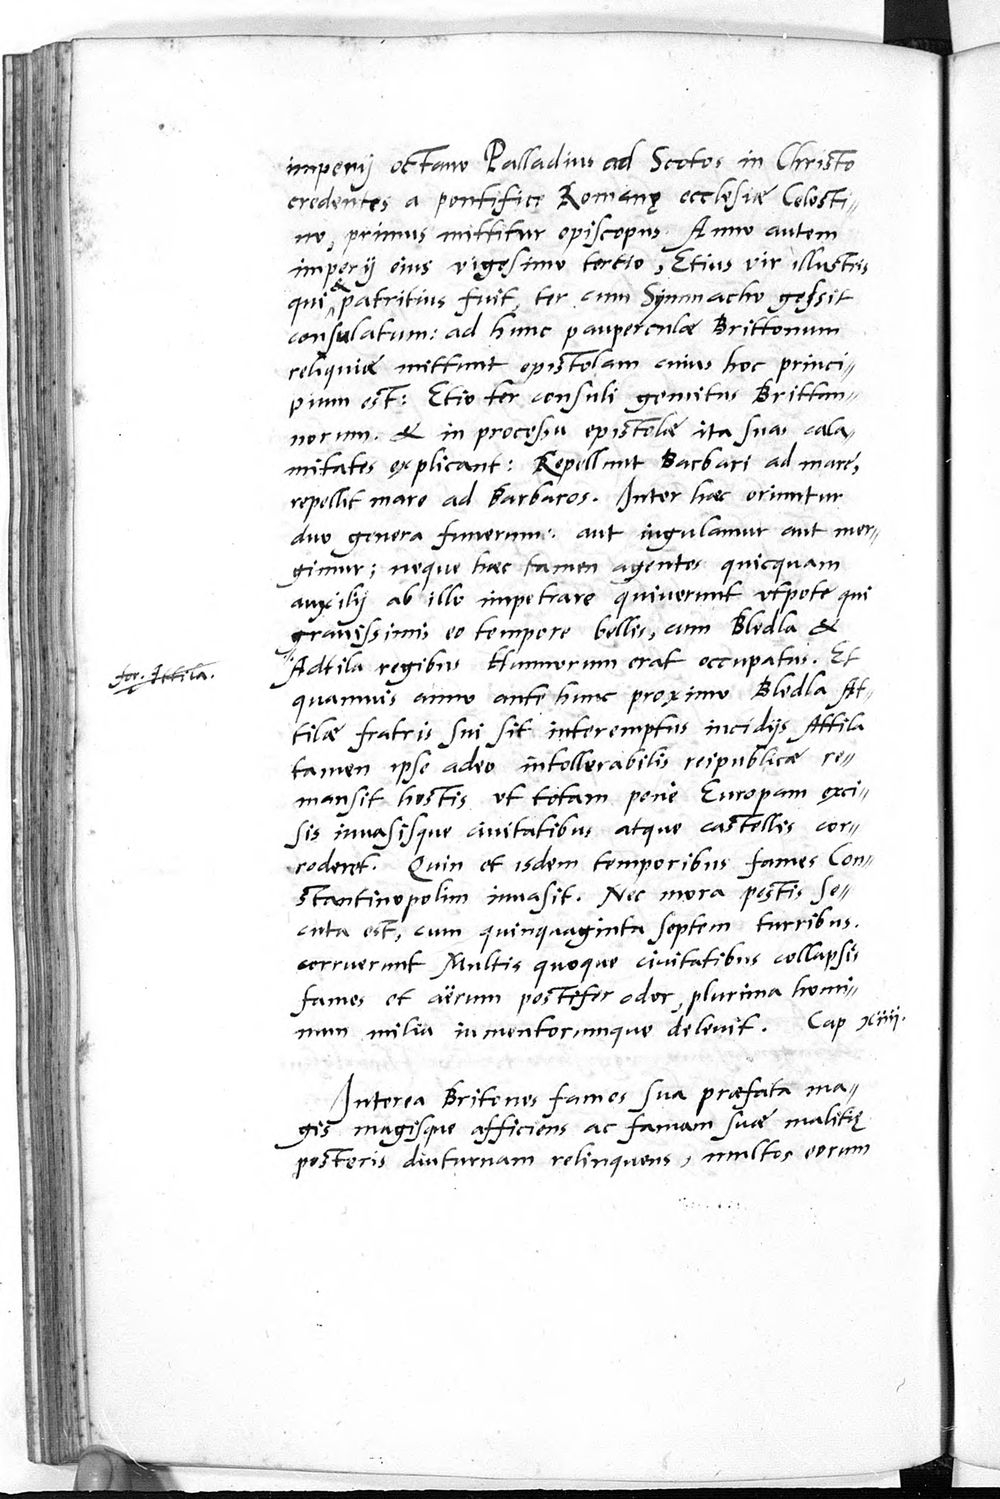 imperij octauo Palladius ad Scotos in Christo
credentes a pontifice Romanę ecclesiæ Celesti//
no, primus mittitur episcopus. Anno autem
imperij eius vigesimo tertio, Etius vir illustris
qui & patritius fuit, ter cum Symmacho gessit
consulatum: ad hunc pauperculæ Brittonum
reliquiæ mittunt epistolam cuius hoc princi//
pium est: Etio ter consuli gemitus Brittan//
norum. & in processu epistolæ ita suas cala//
mitates explicant: Repellunt Barbari ad mare,
repellit mare ad Barbaros. Inter hæc oriuntur
duo genera funerum: aut iugulamur aut mer//
gimur; neque hæc tamen agentes quicquam
auxilij ab illo impetrare quiuerunt vtpote qui
grauissimis eo tempore bellis, cum Bledla &
Adtila regibus Hunnorum erat occupatus. Et
for. Attila.
quamuis anno ante hunc proximo Bledla At//
tilæ fratris sui sit interemptus incidijs Attila
tamen ipse adeo intollerabilis reipublicæ re//
mansit hostis vt totam pene Europam exci//
sis inuasisque ciuitatibus atque castellis cor//
roderet. Quin et isdem temporibus fames Con//
stantinopolim inuasit. Nec mora pestis se//
cuta est, cum quinquaginta septem turribus.
corruerunt Multis quoque ciuitatibus collapsis
fames et aërum pestifer odor, plurima homi//
num milia iumentorumque deleuit. Cap xiiij.
Interea Britones fames sua præfata ma//
gis magisque afficiens ac famam suæ malitię
posteris diuturnam relinquens, multos eorum